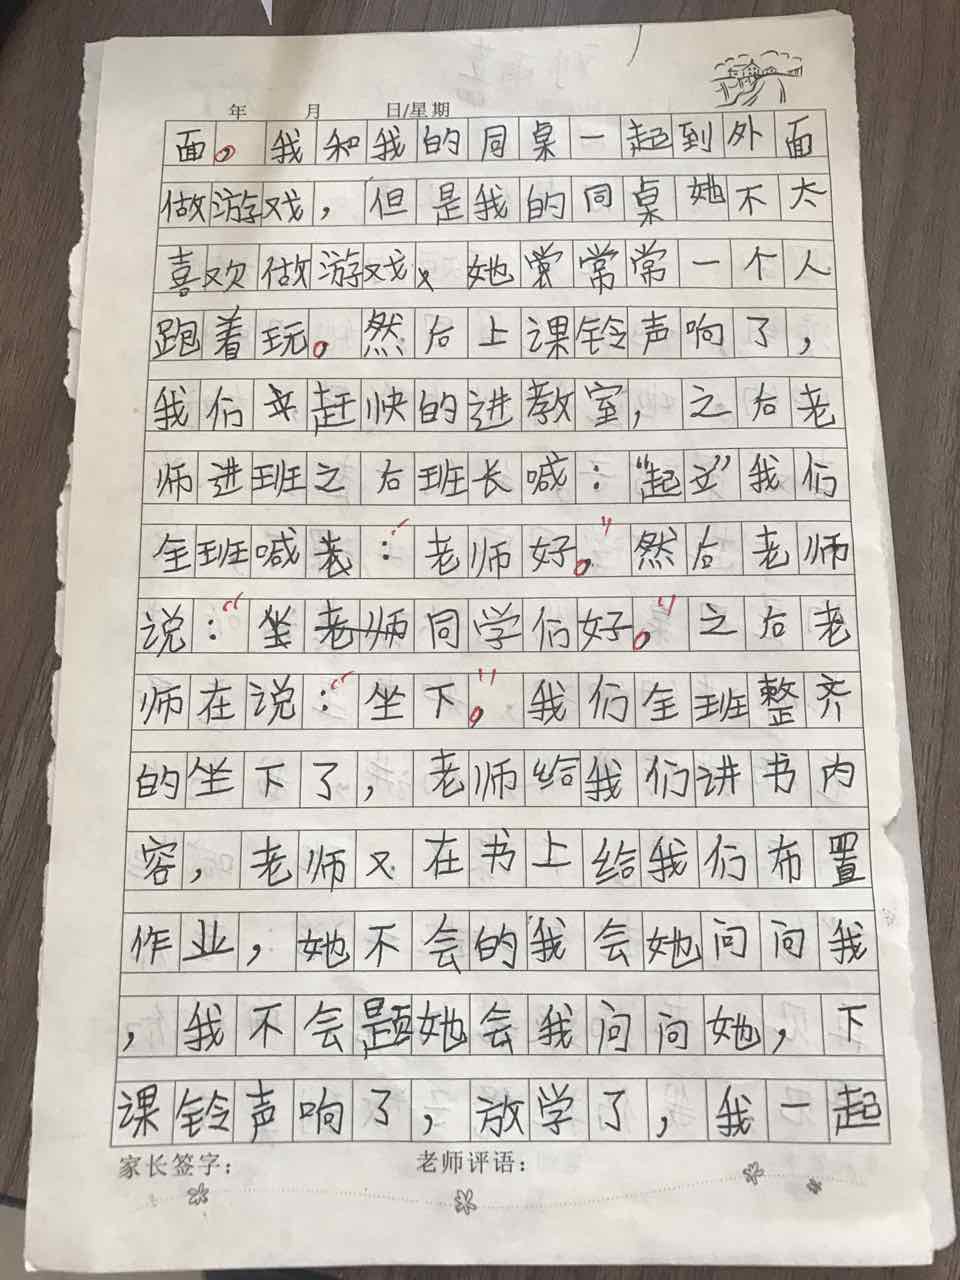 年 月 日/星期
面。我和我的同桌一起到外面
做游戏，但是我的同桌她不太
喜欢做游戏，她常常一个人
跑着玩。然后上课铃声响了，
我们赶快的进教室，之后老
师进班之后班长喊："起立"我们
全班喊：“老师好。”然后老师
说：“同学们好。”之后老
师在说：“坐下。”我们全班整齐
的坐下了，老师给我们讲书内
容，老师又在书上给我们布置
作业，她不会的我会她问问我
，我不会题她会我问问她，下
课铃声响了，放学了，我一起
家长签字： 老师评语：